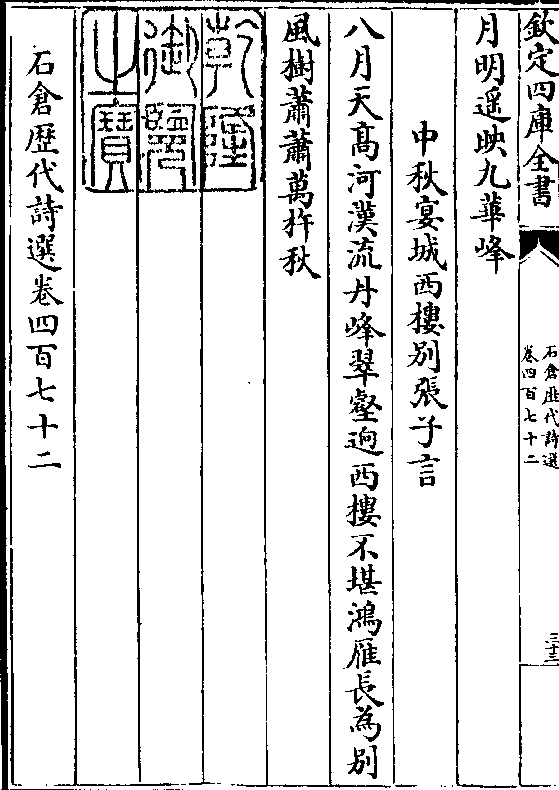 欽定四庫全書
石倉歴代詩選
卷四百七十二
三十三
月明遥映九華峰
中秋宴城西樓别張子言
八月天髙河漢流丹峰翠壑迥西樓不堪鴻雁長為别
風樹蕭蕭萬杵秋
乾隆
御覽
之寶
石倉歴代詩選卷四百七十二